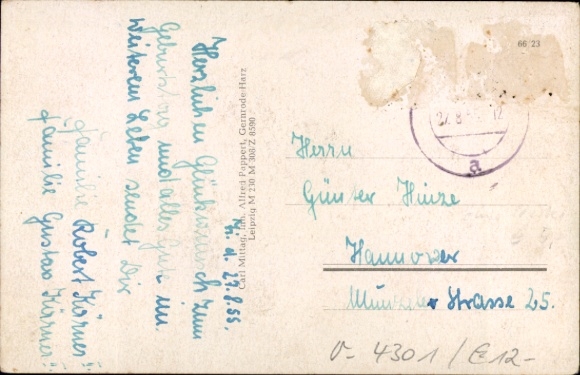 N. d. 27.8.55.
Herzlichen Glückwunsch zum
Geburtstag und alles Gute im
weiteren Leben sendet Dir
Familie Robert Körner
Familie Gustav Körner
Carl Mittag, Inh. Alfred Pappert, Gernrode-Harz
Leipzig M 230 M 308/Z 8590
66/23
27.8.55. 12
a
Herrn
Günter Hinze
Hannover
Strasse 25.
V- 4301/E12-